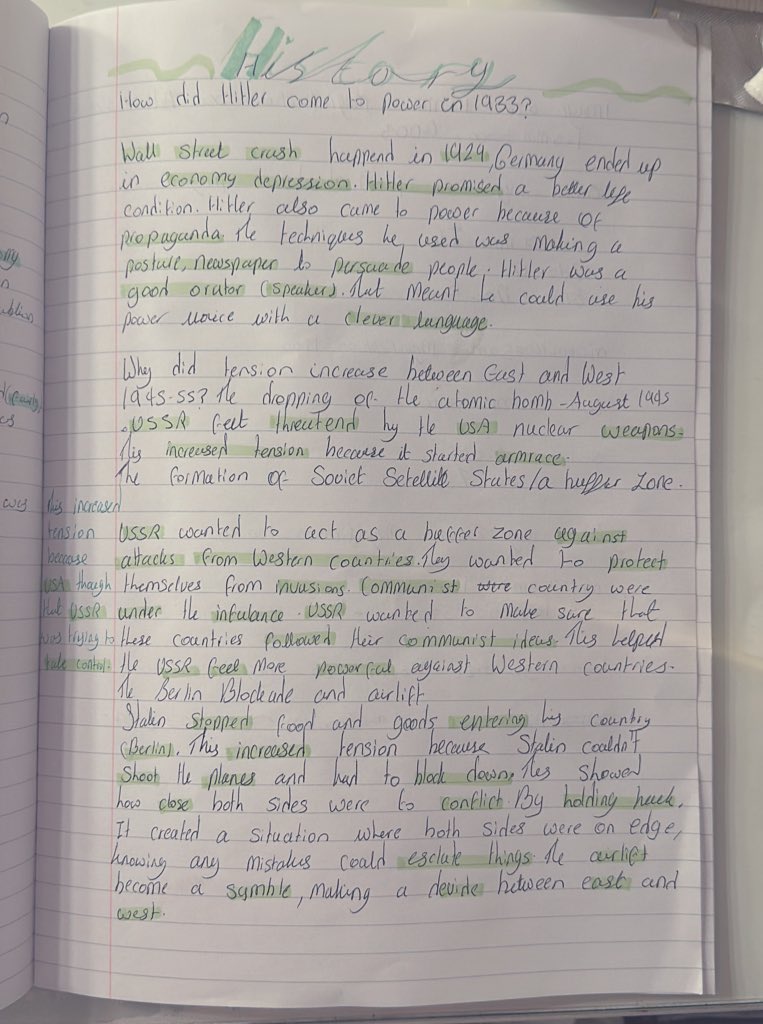 History
How did Hitler come to power in 1933?
Wall street crash happend in 1929, Germany ended up
in economy depression. Hitler promised a better life
condition. Hitler also came to power because of
propaganda The techniques he used was making a
posture, newspaper to persaade people. Hitler was a
good orator (speaker). That meant he could use his
power voice with a clever language.
Why did tension increase between East and West
1945-55? The dropping of the atomic bomb - August 1945
. USSR felt threatend by the USA nuclear weapons.
This increased tension because it started armrace.
The formation of Soviet Setellile States/a buffer zone.
USSR wanted to act as a buffer zone against
attacks from Western countries. They wanted to protect
themselves from invasions. Communist were country were
under the infulance. USSR wanted to make sure that
these countries followed their communist ideas. This helped
the USSR feel more powerful against Western countries.
The Berlin Blockade and airlift
Stalin stopped food and goods entering his country
(Berlin). This increased tension because Stalin couldn't
shoot the planes and had to block down. This showed
how close both sides were to conflict. By holding back.
It created a situation where both sides were on edge,
knowing any mistakes could esclate things. The airlift
become a symble, making a devide between east and
west.
This increased
tension
because
USA though
that USSR
was trying to
take control.
was